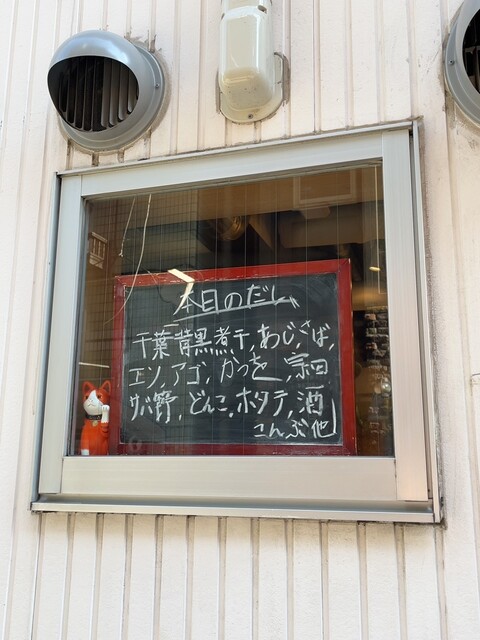 本日のだし
千葉背黒煮干,あじ,さば,
エソ,アゴ,かつを,宗田
サバ節,どんこ,ホタテ,酒
こんぶ他